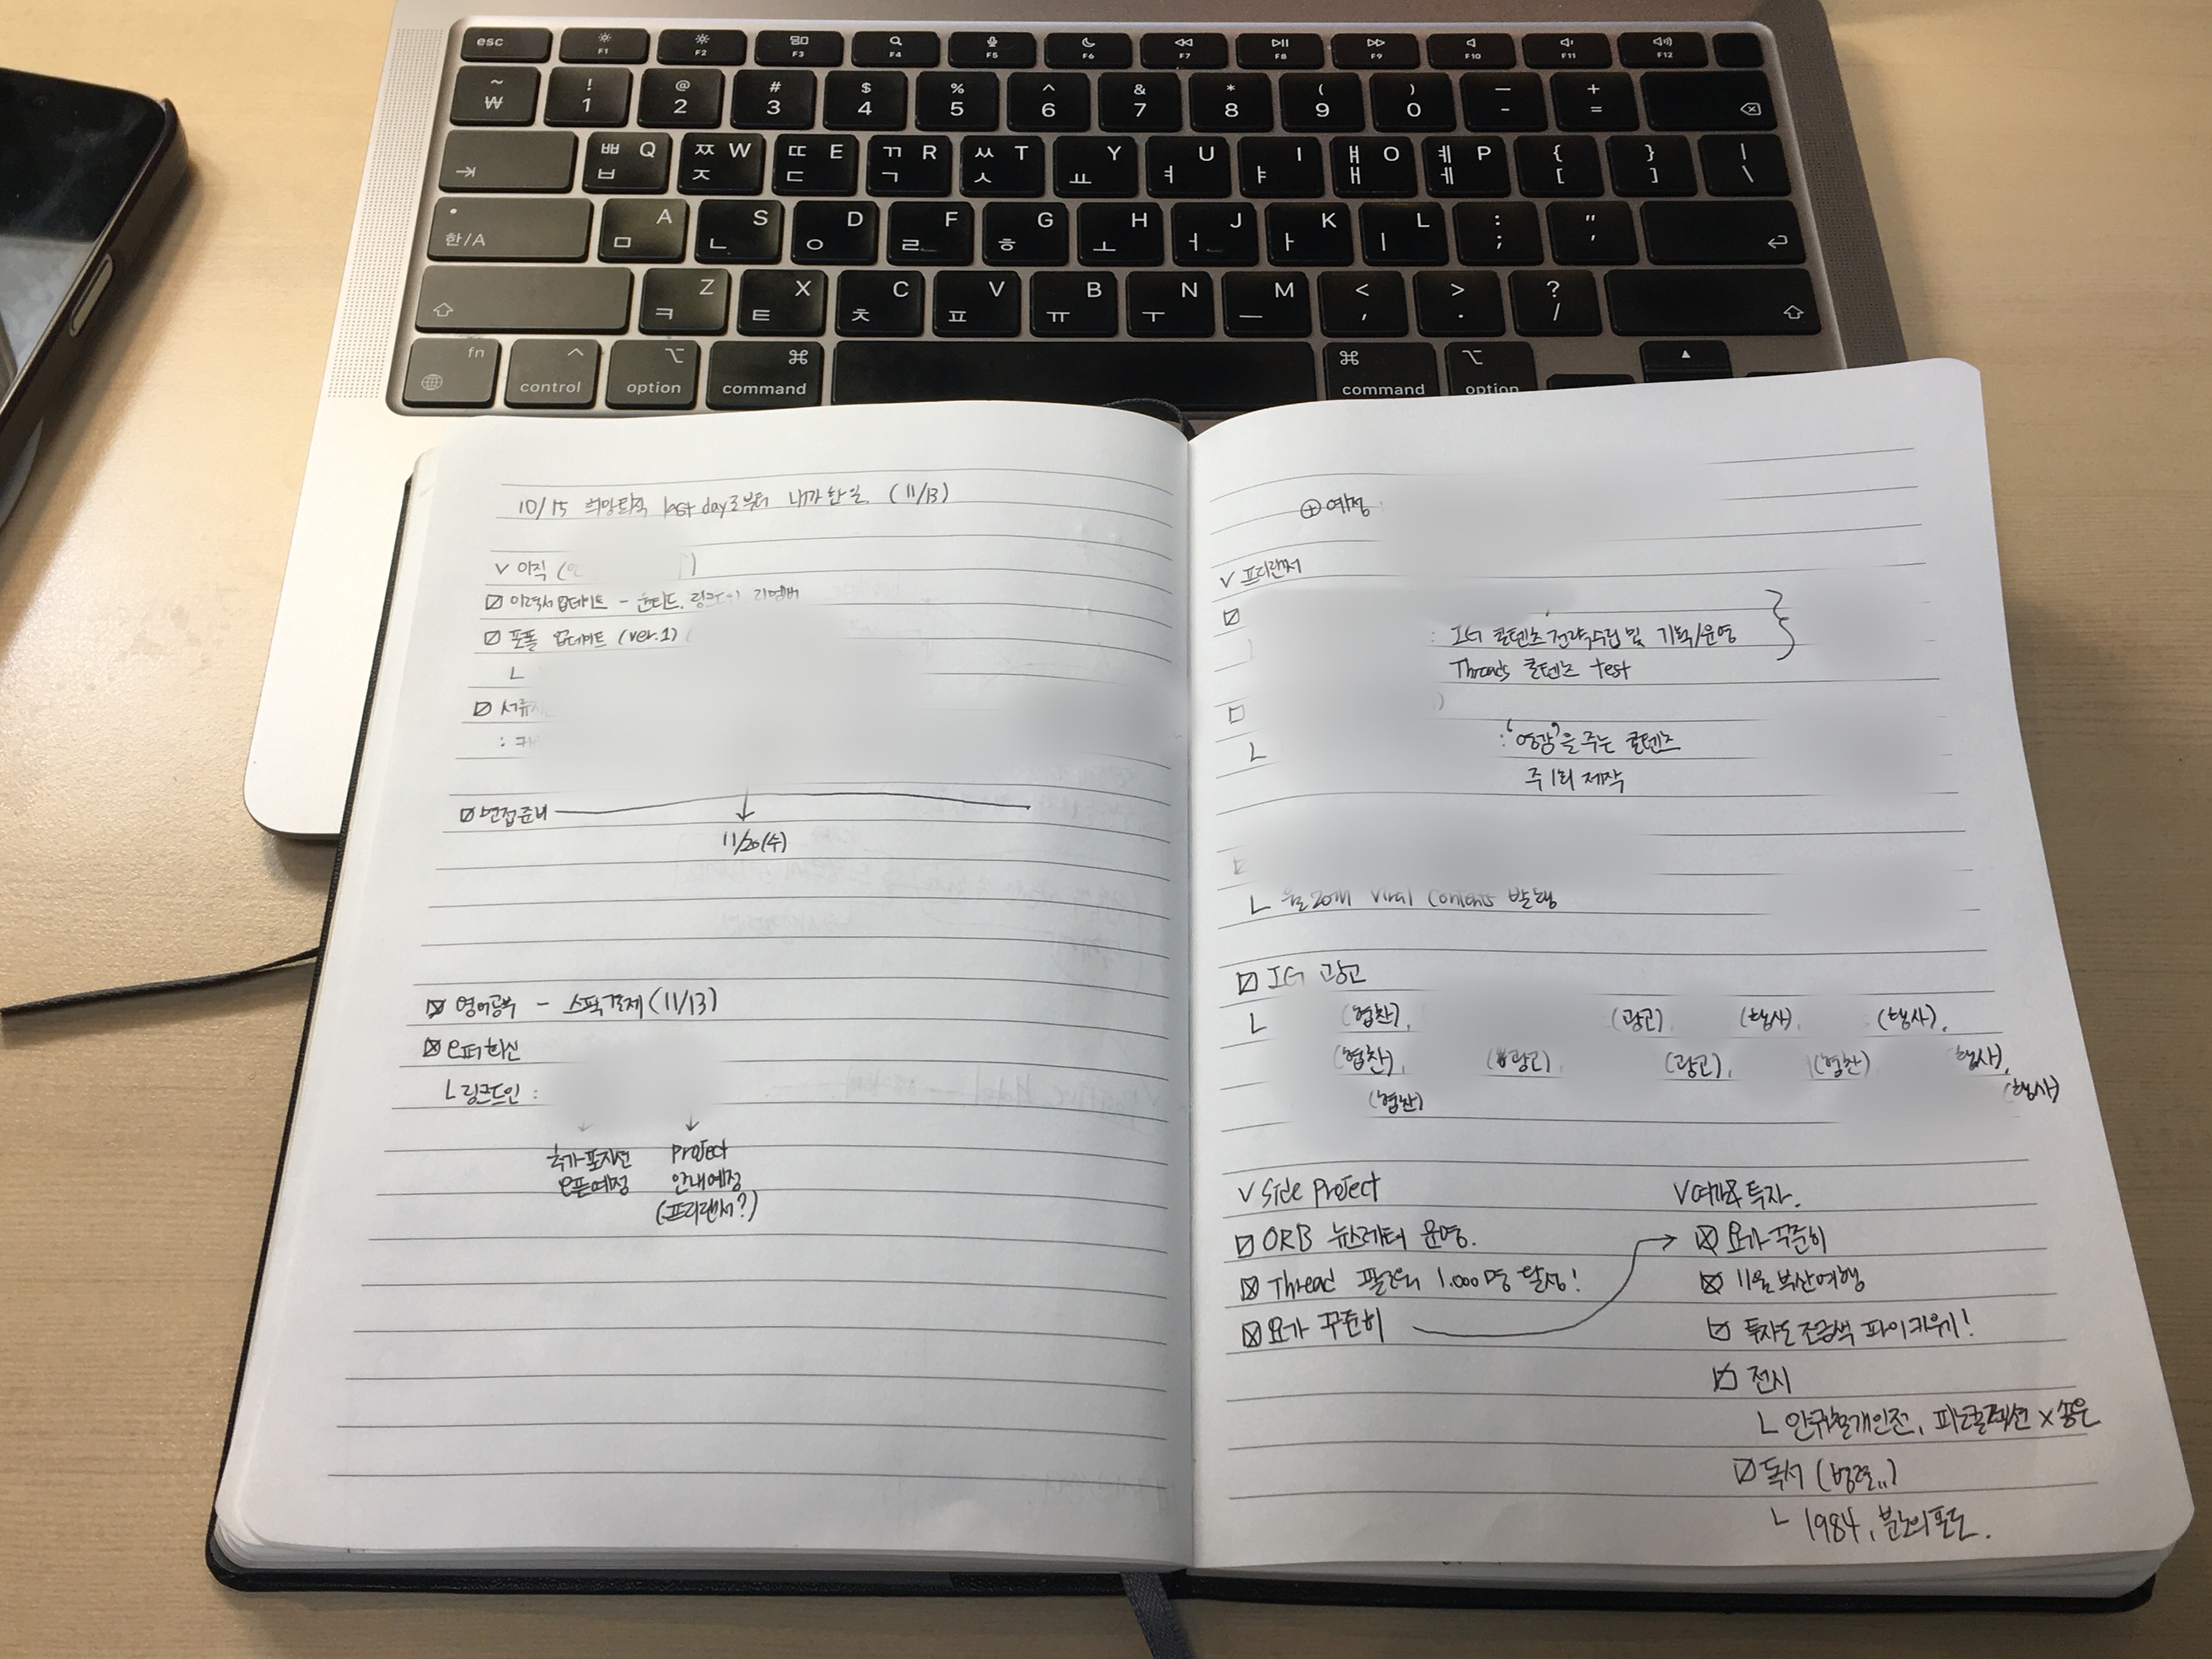 esc F1 F2 F3 F4 F5 F6 F7 F8 F9 F10 F11 F12
~ ₩ ! 1 @ 2 # 3 $ 4 % 5 ^ 6 & 7 * 8 ( 9 ) 0 — - + =
ㅃ Q ㅂ ㅉ W ㅈ ㄸ E ㄷ ㄲ R ㄱ ㅆ T ㅅ Y ㅛ U ㅕ I ㅑ ㅒ O ㅐ ㅖ P ㅔ { [ } ] | \
한/A A ㅁ S ㄴ D ㅇ F ㄹ G ㅎ H ㅗ J ㅓ K ㅏ L ㅣ : ; " '
Z ㅋ X ㅌ C ㅊ V ㅍ B ㅠ N ㅜ M ㅡ < , > . ? /
fn control option command command option
10/15 희망퇴직 last day로부터 내가 한 일. (11/13)
V 이직 (
☑ 이력서 업데이트 - 원티드, 링크드인, 리멤버
☑ 포폴 업데이트 (ver.1)
ㄴ
☑ 서류
☑ 면접준비
11/20(수)
☒ 영어공부 - 스픽결제 (11/13)
☒ 오퍼회신
ㄴ 링크드인 :
추가포지션 오픈예정
Project 안내예정 (프리랜서?)
⊕ 예정
V 프리랜서
☑
: IG 콘텐츠 전략수립 및 기획/운영
Threads 콘텐츠 test
□
ㄴ : '영감'을 주는 콘텐츠
주 1회 제작
ㄴ 월 20개 viral contents 발행
☑ IG 광고
ㄴ (협찬), (광고), (행사), (행사),
(협찬), (광고), (광고), (협찬) 행사),
(협찬) (행사)
V Side Project
☑ ORB 뉴스레터 운영.
☒ Thread 팔로워 1,000명 달성!
☒ 요가 꾸준히
V 여가&투자.
☒ 요가 꾸준히
☒ 11월 부산여행
☑ 투자도 조금씩 파이 키우기!
☑ 전시
ㄴ 개인전, 컬렉션 x 송은
☑ 독서 (병렬..)
ㄴ 1984, 분노의 포도.